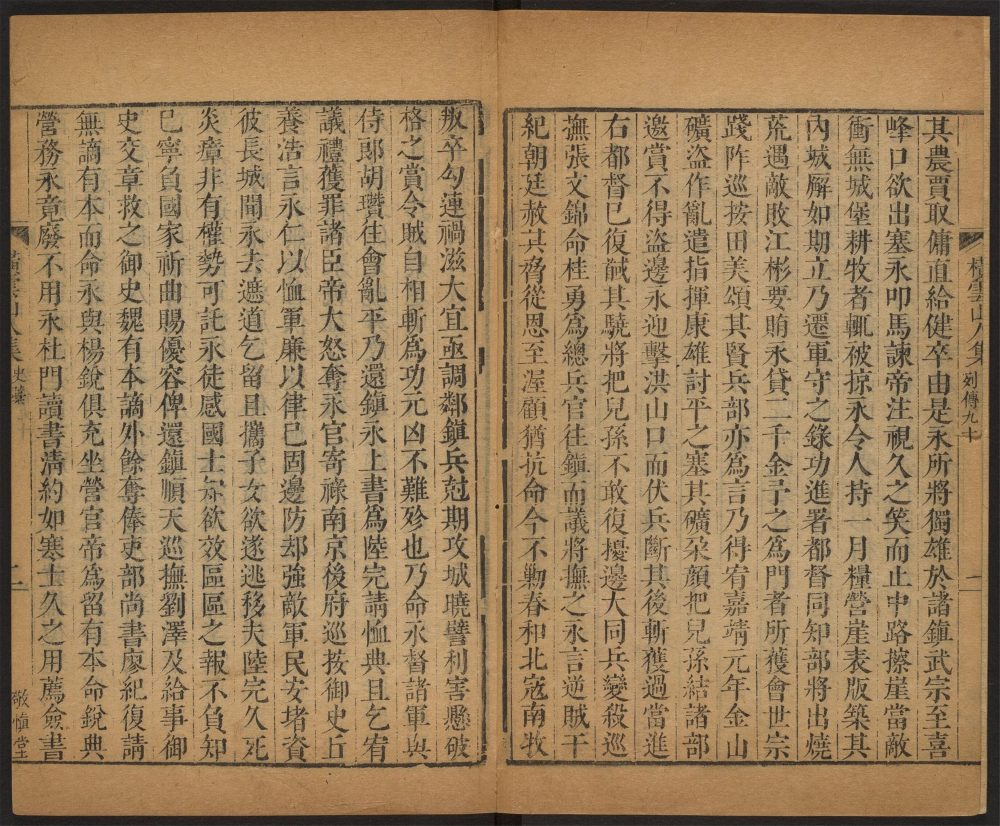 其農賈取傭直給健卒由是永所將獨雄於諸鎮武宗至喜
峰口欲出塞永叩馬諫帝注視久之笑而止中路擦崖當敵
衝無城堡耕牧者輒被掠永令人持一月糧營崖表版築其
內城廨如期立乃遷軍守之錄功進署都督同知部將出燒
荒遇敵敗江彬要賄永貸二千金予之為門者所獲會世宗
踐阼巡按田美頌其賢兵部亦為言乃得宥嘉靖元年金山
礦盜作亂遣指揮康雄討平之塞其礦朶顏把兒孫結諸部
邀賞不得盜邊永迎擊洪山口而伏兵斷其後斬獲過當進
右都督已復馘其驍將把兒孫不敢復擾邊大同兵變殺巡
撫張文錦命桂勇為總兵官往鎮而議將撫之永言逆賊干
紀朝廷赦其脅從恩至渥顧猶抗命今不勦春和北寇南牧
叛卒勾連禍滋大宜亟調鄰鎮兵尅期攻城曉譬利害懸破
格之賞令賊自相斬為功元凶不難殄也乃命永督諸軍與
侍郎胡瓚往會亂平乃還鎮永上書為陸完請恤典且乞宥
議禮獲罪諸臣帝大怒奪永官寄祿南京後府巡按御史丘
養浩言永仁以恤軍廉以律已固邊防却強敵軍民安堵資
彼長城聞永去遮道乞留且攜子女欲遂逃移夫陸完久死
炎瘴非有權勢可託永徒感國士知欲效區區之報不負知
已寧負國家祈曲賜優容俾還鎮順天巡撫劉澤及給事御
史交章救之御史魏有本謫外餘奪俸吏部尚書廖紀復請
無謫有本而命永與楊銳俱充坐營官帝為留有本命銳典
營務永竟廢不用永杜門讀書清約如寒士久之用薦僉書
橫雲山人集
列傳九十
一
橫雲山人集
史藁
二
敬慎堂